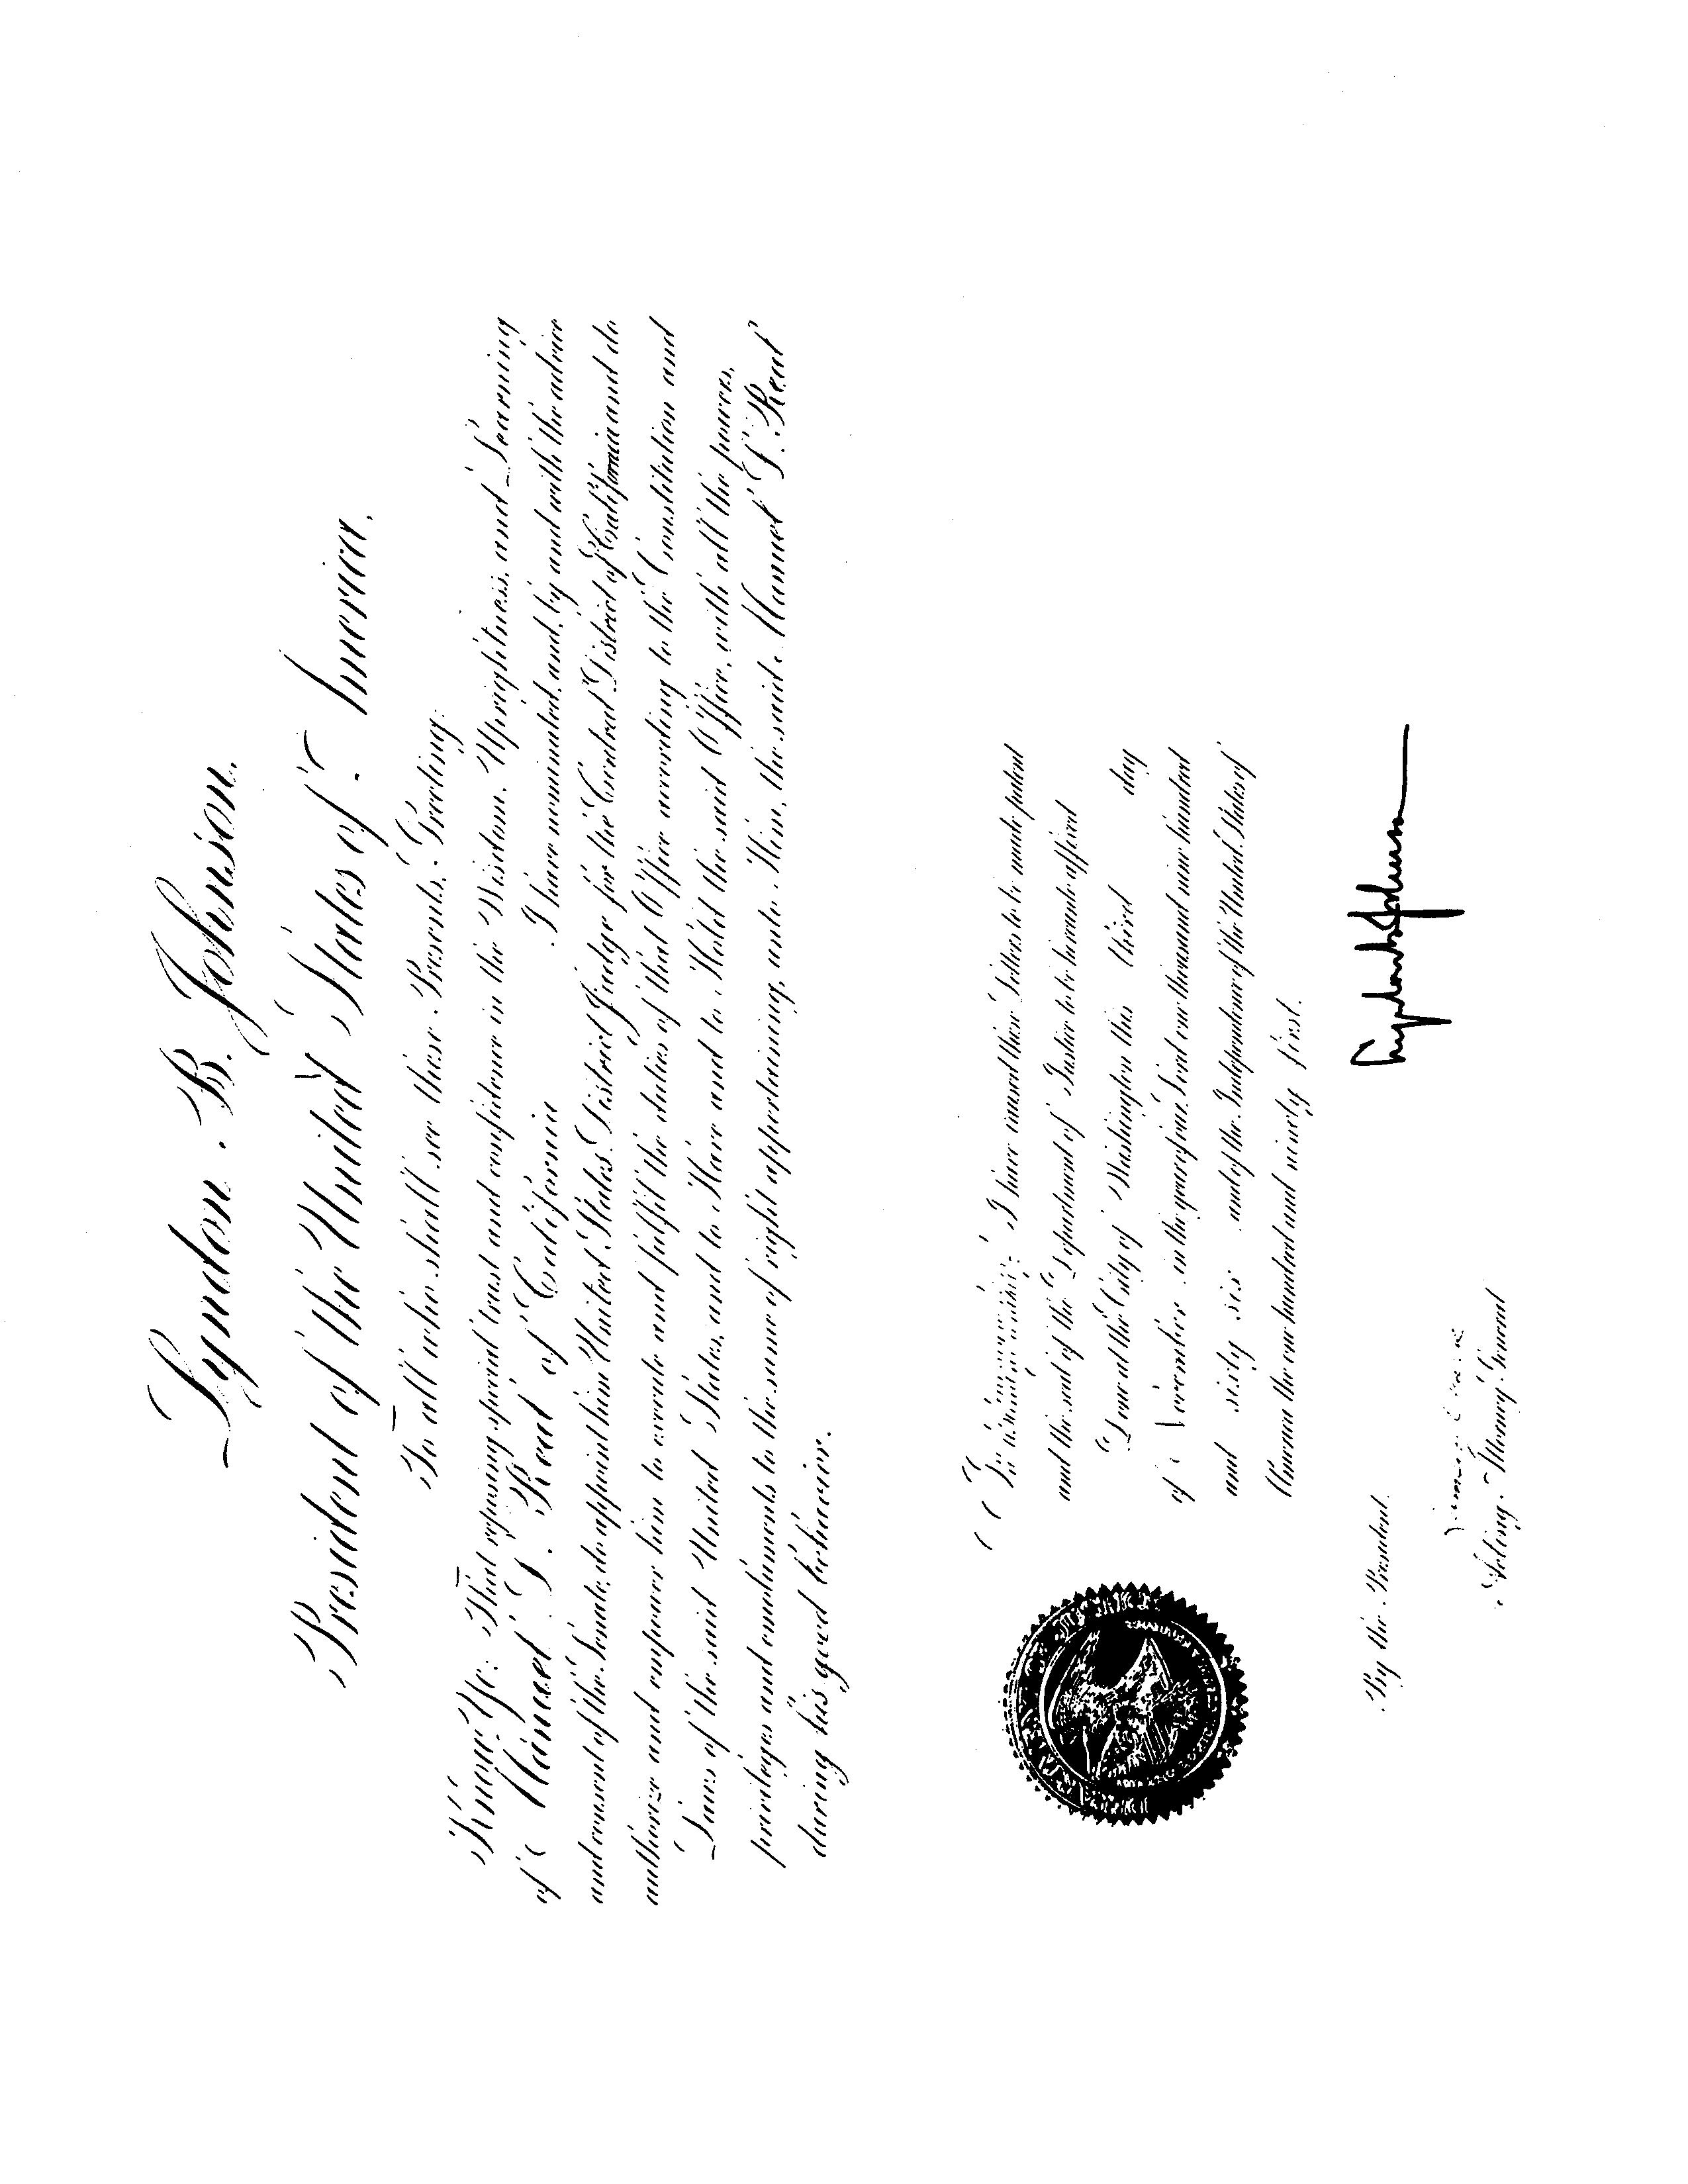 Lyndon B. Johnson,
President of the United States of America,
To all who shall see these Presents, Greeting:
Know Ye: That reposing special trust and confidence in the Wisdom, Uprightness, and Learning
of Manuel L. Real of California I have nominated, and, by and with the advice
and consent of the Senate, do appoint him United States District Judge for the Central District of California and do
authorize and empower him to execute and fulfil the duties of that Office according to the Constitution and
Laws of the said United States, and to Have and to Hold the said Office, with all the powers,
privileges and emoluments to the same of right appertaining, unto Him, the said Manuel L. Real
during his good behavior.
In testimony whereof, I have caused these Letters to be made patent
and the seal of the Department of Justice to be hereunto affixed
Done at the City of Washington this third day
of November in the year of our Lord one thousand nine hundred
and sixty six and of the Independence of the United States of
America the one hundred and ninety first.
Lyndon B. Johnson
By the President:
Acting Attorney General